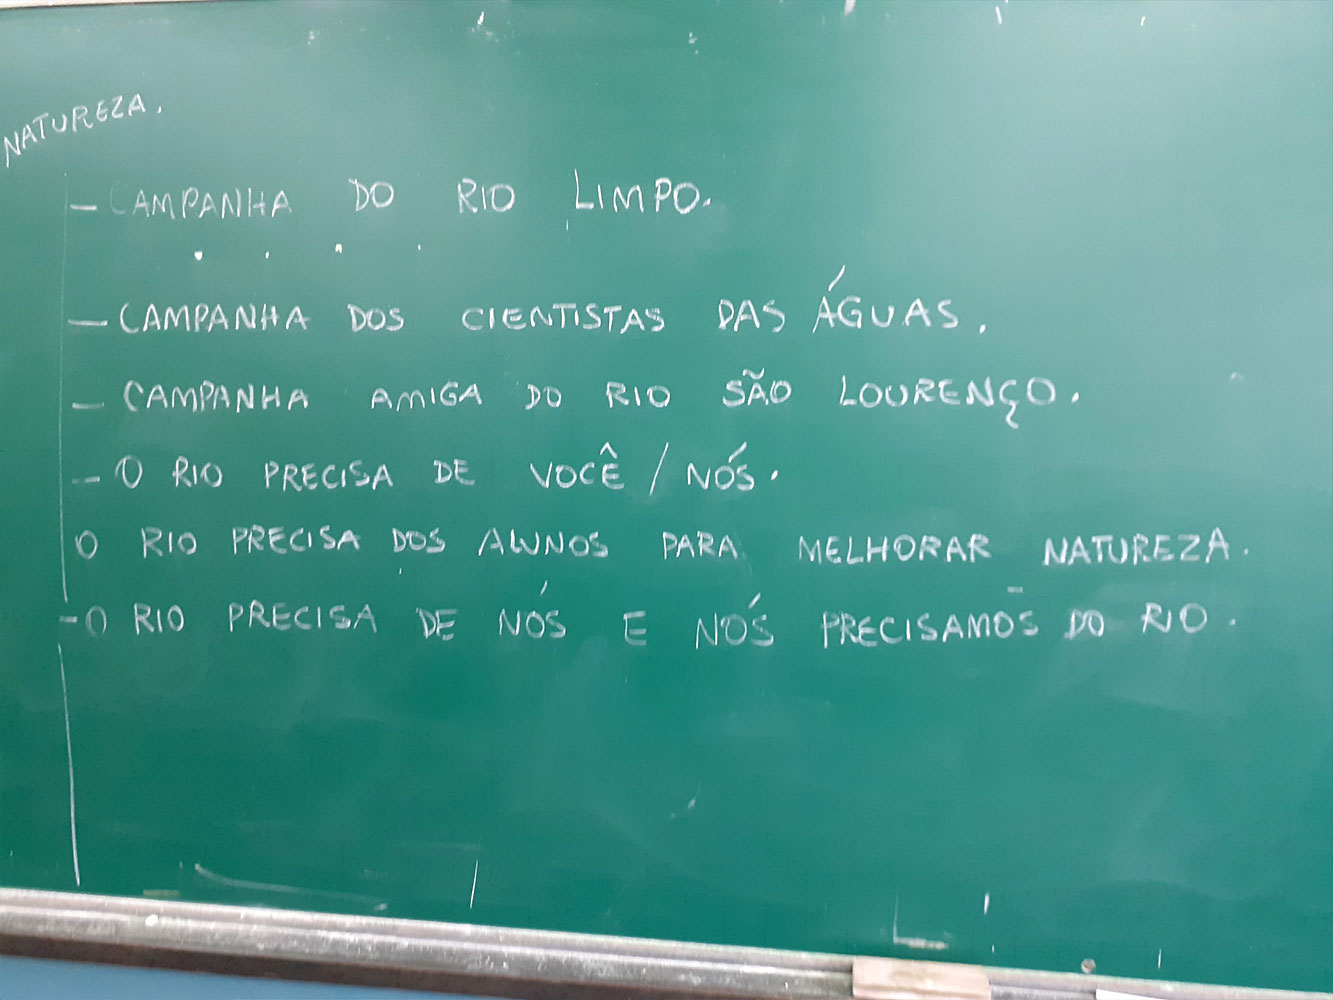 NATUREZA.
- CAMPANHA DO RIO LIMPO.
- CAMPANHA DOS CIENTISTAS DAS ÁGUAS.
- CAMPANHA AMIGA DO RIO SÃO LOURENÇO.
- O RIO PRECISA DE VOCÊ / NÓS.
O RIO PRECISA DOS ALUNOS PARA MELHORAR NATUREZA.
- O RIO PRECISA DE NÓS E NÓS PRECISAMOS DO RIO.